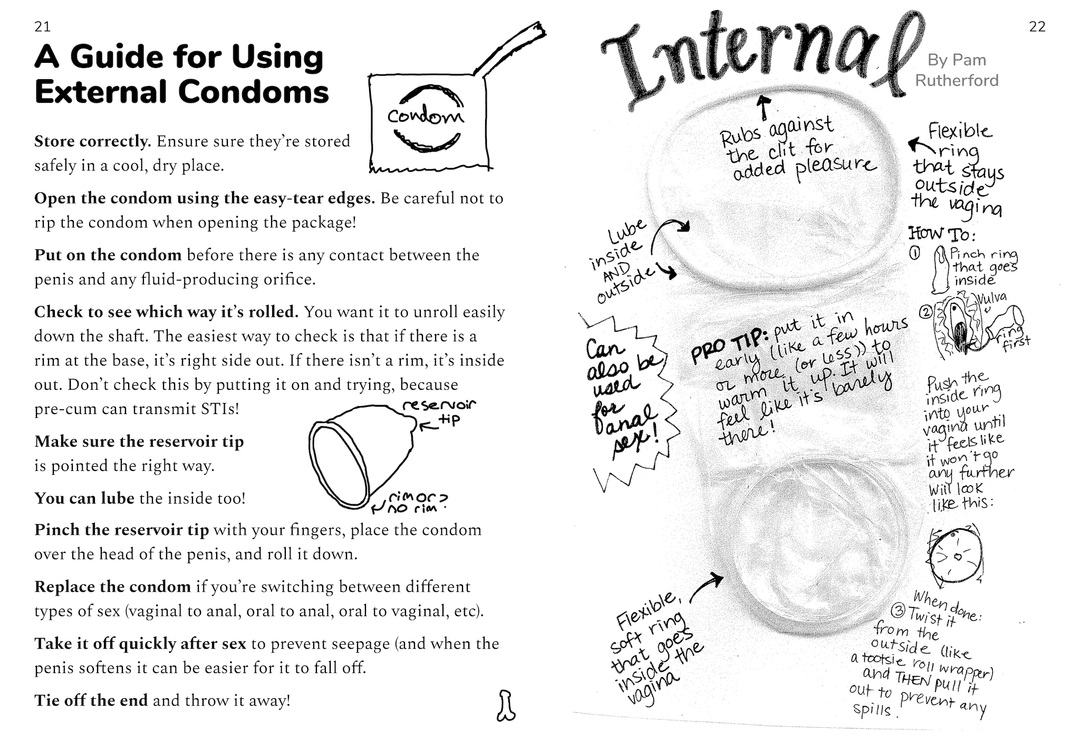 21
A Guide for Using
External Condoms
condom
Store correctly. Ensure sure they're stored
safely in a cool, dry place.
Open the condom using the easy-tear edges. Be careful not to
rip the condom when opening the package!
Put on the condom before there is any contact between the
penis and any fluid-producing orifice.
Check to see which way it's rolled. You want it to unroll easily
down the shaft. The easiest way to check is that if there is a
rim at the base, it's right side out. If there isn't a rim, it's inside
out. Don't check this by putting it on and trying, because
pre-cum can transmit STIs!
reservoir
tip
Make sure the reservoir tip
is pointed the right way.
rim or
no rim?
You can lube the inside too!
Pinch the reservoir tip with your fingers, place the condom
over the head of the penis, and roll it down.
Replace the condom if you're switching between different
types of sex (vaginal to anal, oral to anal, oral to vaginal, etc).
Take it off quickly after sex to prevent seepage (and when the
penis softens it can be easier for it to fall off.
Tie off the end and throw it away!
22
Internal
By Pam
Rutherford
Rubs against
the clit for
added pleasure
Flexible
ring
that stays
outside
the vagina
Lube
inside
AND
outside
HOW TO:
① Pinch ring
that goes
inside
②
Vulva
ring
first
Can
also be
used
for
anal
sex!
PRO TIP: put it in
early (like a few hours
or more (or less)) to
warm it up. It will
feel like it's barely
there!
Push the
inside ring
into your
vagina until
it feels like
it won't go
any further
Will look
like this:
Flexible,
soft ring
that goes
inside the
vagina
When done:
③ Twist it
from the
outside (like
a tootsie roll wrapper)
and THEN pull it
out to prevent any
spills.